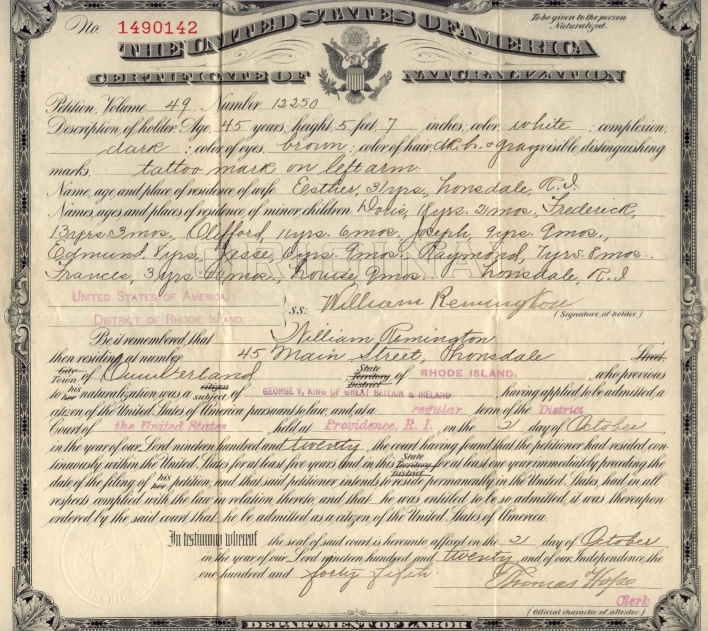 No. 1490142
To be given to the person Naturalized.
THE UNITED STATES OF AMERICA
CERTIFICATE OF NATURALIZATION
Petition, Volume 49 Number 12250
Description of holder: Age, 45 years; height, 5 feet, 7 inches; color, white; complexion,
dark; color of eyes, brown; color of hair, dk. br. & gray; visible distinguishing
marks, tattoo mark on left arm.
Name, age and place of residence of wife Esther, 31 yrs., Lonsdale, R.I.
Names, ages and places of residence of minor children Doris, 18 yrs. 2 mos., Frederick,
13 yrs. 3 mos., Clifford, 11 yrs. 6 mos., Joseph, 9 yrs. 9 mos.,
Edmund, 8 yrs., Jessie, 9 mos. Raymond, 7 yrs. 8 mos.
Frances, 3 yrs. mos., Louise 9 mos. Lonsdale, R.I.
UNITED STATES OF AMERICA,
DISTRICT OF RHODE ISLAND. } s.s: William Remington
(Signature of holder.)
Be it remembered, that William Remington
then residing at number 45 Main Street, Lonsdale Street
City Town of Cumberland State Territory District of RHODE ISLAND. , who previous
to his her naturalization was a citizen subject of GEORGE V, KING OF GREAT BRITAIN & IRELAND having applied to be admitted, a
citizen of the United States of America pursuant to law, and at a regular term of the District
Court of the United States held at Providence, R. I. on the 2 day of October
in the year of our Lord nineteen hundred and twenty, the court having found that the petitioner had resided con-
tinuously within the United States for at least five years and in this State Territory District for at least one year immediately preceding the
date of the filing of his her petition, and that said petitioner intends to reside permanently in the United States, had in all
respects complied with the law in relation thereto, and that he was entitled to be so admitted, it was thereupon
ordered by the said court that he be admitted as a citizen of the United States of America.
In testimony whereof the seal of said court is hereunto affixed on the 2 day of October
in the year of our Lord nineteen hundred and twenty and of our Independence the
one hundred and forty fifth. Thomas Hope
Clerk
(Official character of attestor.)
DEPARTMENT OF LABOR